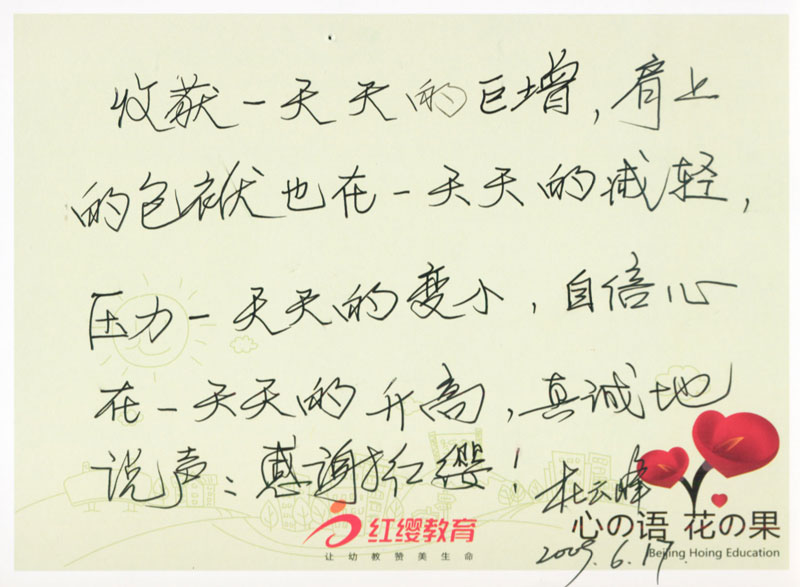 收获一天天的巨增，肩上
的包袱也在一天天的减轻，
压力一天天的变小，自信心
在一天天的升高，真诚地
说声：感谢红缨！
杜云峰
2009.6.17
红缨教育
让幼教赞美生命
心の语 花の果
Beijing Hoing Education